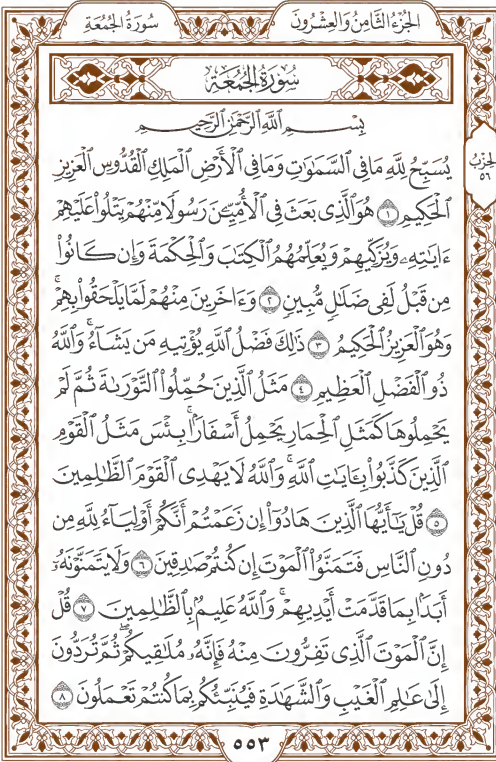 الجُزْءُ الثَّامِنُ وَالعِشْرُونَ
سُورَةُ الجُمُعَةِ
سُورَةُ الجُمُعَةِ
بِسْمِ ٱللَّهِ ٱلرَّحْمَٰنِ ٱلرَّحِيمِ
يُسَبِّحُ لِلَّهِ مَا فِي ٱلسَّمَٰوَٰتِ وَمَا فِي ٱلْأَرْضِ ٱلْمَلِكِ ٱلْقُدُّوسِ ٱلْعَزِيزِ
ٱلْحَكِيمِ ١ هُوَ ٱلَّذِي بَعَثَ فِي ٱلْأُمِّيِّـۧنَ رَسُولًا مِّنْهُمْ يَتْلُوا۟ عَلَيْهِمْ
ءَايَٰتِهِۦ وَيُزَكِّيهِمْ وَيُعَلِّمُهُمُ ٱلْكِتَٰبَ وَٱلْحِكْمَةَ وَإِن كَانُوا۟
مِن قَبْلُ لَفِي ضَلَٰلٍ مُّبِينٍ ٢ وَءَاخَرِينَ مِنْهُمْ لَمَّا يَلْحَقُوا۟ بِهِمْۚ
وَهُوَ ٱلْعَزِيزُ ٱلْحَكِيمُ ٣ ذَٰلِكَ فَضْلُ ٱللَّهِ يُؤْتِيهِ مَن يَشَآءُۚ وَٱللَّهُ
ذُو ٱلْفَضْلِ ٱلْعَظِيمِ ٤ مَثَلُ ٱلَّذِينَ حُمِّلُوا۟ ٱلتَّوْرَىٰةَ ثُمَّ لَمْ
يَحْمِلُوهَا كَمَثَلِ ٱلْحِمَارِ يَحْمِلُ أَسْفَارًۢاۚ بِئْسَ مَثَلُ ٱلْقَوْمِ
ٱلَّذِينَ كَذَّبُوا۟ بِـَٔايَٰتِ ٱللَّهِۚ وَٱللَّهُ لَا يَهْدِي ٱلْقَوْمَ ٱلظَّٰلِمِينَ
٥ قُلْ يَٰٓأَيُّهَا ٱلَّذِينَ هَادُوٓا۟ إِن زَعَمْتُمْ أَنَّكُمْ أَوْلِيَآءُ لِلَّهِ مِن
دُونِ ٱلنَّاسِ فَتَمَنَّوُا۟ ٱلْمَوْتَ إِن كُنتُمْ صَٰدِقِينَ ٦ وَلَا يَتَمَنَّوْنَهُۥٓ
أَبَدًۢا بِمَا قَدَّمَتْ أَيْدِيهِمْۚ وَٱللَّهُ عَلِيمُۢ بِٱلظَّٰلِمِينَ ٧ قُلْ
إِنَّ ٱلْمَوْتَ ٱلَّذِي تَفِرُّونَ مِنْهُ فَإِنَّهُۥ مُلَٰقِيكُمْۖ ثُمَّ تُرَدُّونَ
إِلَىٰ عَٰلِمِ ٱلْغَيْبِ وَٱلشَّهَٰدَةِ فَيُنَبِّئُكُم بِمَا كُنتُمْ تَعْمَلُونَ ٨
الحِزْبُ
٥٦
٥٥٣